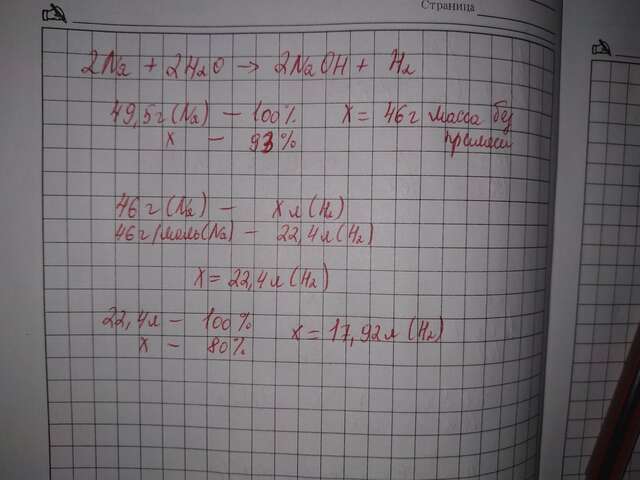 Страница
2Na + 2H2O → 2NaOH + H2
49,5г(Na) — 100% X = 46г масса без
x — 93% примеси
46г(Na) — Xл(H2)
46г/моль(Na) — 22,4л(H2)
X = 22,4л(H2)
22,4л — 100% X = 17,92л(H2)
X — 80%